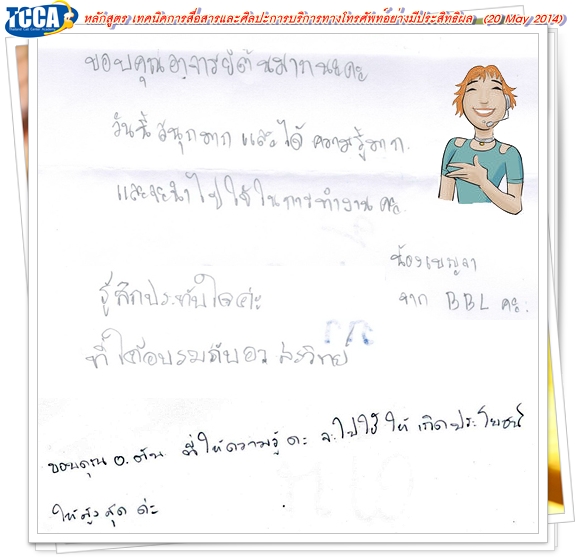 TCCA
Thailand Call Center Academy
หลักสูตร เทคนิคการสื่อสารและศิลปะการบริการทางโทรศัพท์อย่างมีประสิทธิผล (20 May 2014)
ขอบคุณอาจารย์ต้นมากนะคะ
วันนี้ สนุกมาก และได้ ความรู้มาก.
และจะนำไปใช้ในการทำงาน คะ.
น้องเบญจา
จาก BBL คะ.
รู้สึกประทับใจค่ะ
ที่ได้อบรมกับอ.
ขอบคุณ อ.ต้น ที่ให้ความรู้คะ จะไปใช้ ให้ เกิดประโยชน์
ให้สูงสุด ค่ะ